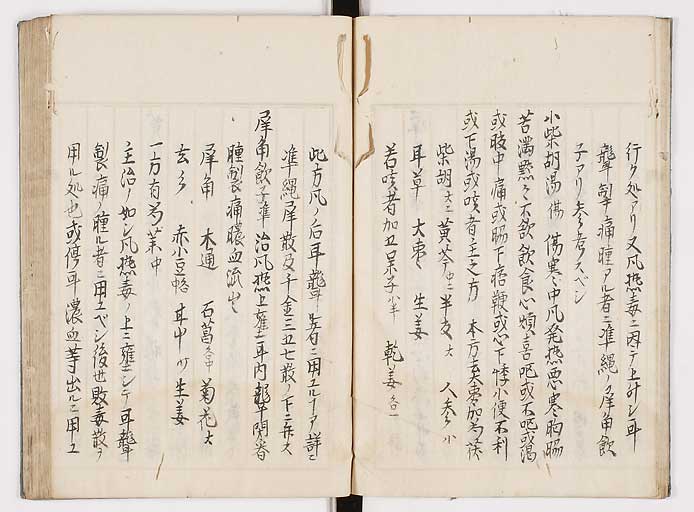 行ク処アリ又凡熱毒ニ因テ上計シ耳
聾掣痛腫アル者ニ準縄ノ犀角飲
子アリ参考スベシ
小柴胡湯 傷 傷寒中凡発熱悪寒胸脇
苦満黙々不欲飲食心煩喜呕或不呕或渇
或肢中痛或脇下痞鞕或心下悸小便不利
或下渇或咳者主之方 本方去人参加
柴胡 黄芩 半夏 人参
耳草 大棗 生姜
若咳者加五味子 乾姜
此方凡ノ后耳聾スル者ニ用ユル 詳ニ
準縄犀散及千金三五七散ノ下ニ弁ス
犀角飲子準 治凡熱上壅耳内聾閉
腫掣痛膿血流出
犀角 木通 石菖 菊花
玄参 赤小豆 耳草 生姜
一方有芍薬中
主治ノ如シ凡熱毒ノ上ニ壅シテ耳聾
掣痛ノ腫ル者ニ用ユベシ後世敗毒散ヲ
用ル処也或停耳濃血等出ルニ用ユ